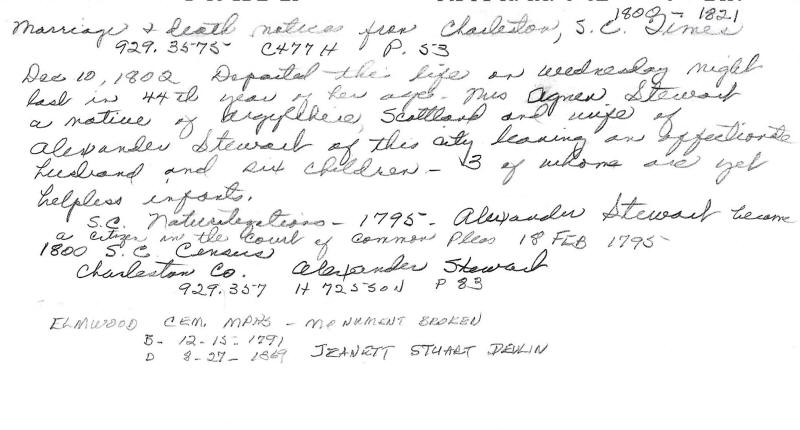 1802 - 1821
Marriage & death notices from Charleston, S.C. Times
929.3575 C477H P. 53
Dec 10, 1802 Departed this life on Wednesday night
last in 44th year of her age. Mrs Agnes Stewart
a native of Argyllshire, Scottland and wife of
Alexander Stewart of this city leaving an affectionate
husband and six children - 3 of whome are yet
helpless infants.
S.C. Naturilizations - 1795 - Alexander Stewart became
a citizen in the Court of Common Pleas 18 FEB 1795
1800 S.C. Census
Charleston Co. Alexander Stewart
929.357 H 7255ON P 83
ELMWOOD CEM. MPHS - MONUMENT BROKEN
B - 12 - 15 - 1791
D 8 - 27 - 1869 JEANETT STUART DEVLIN